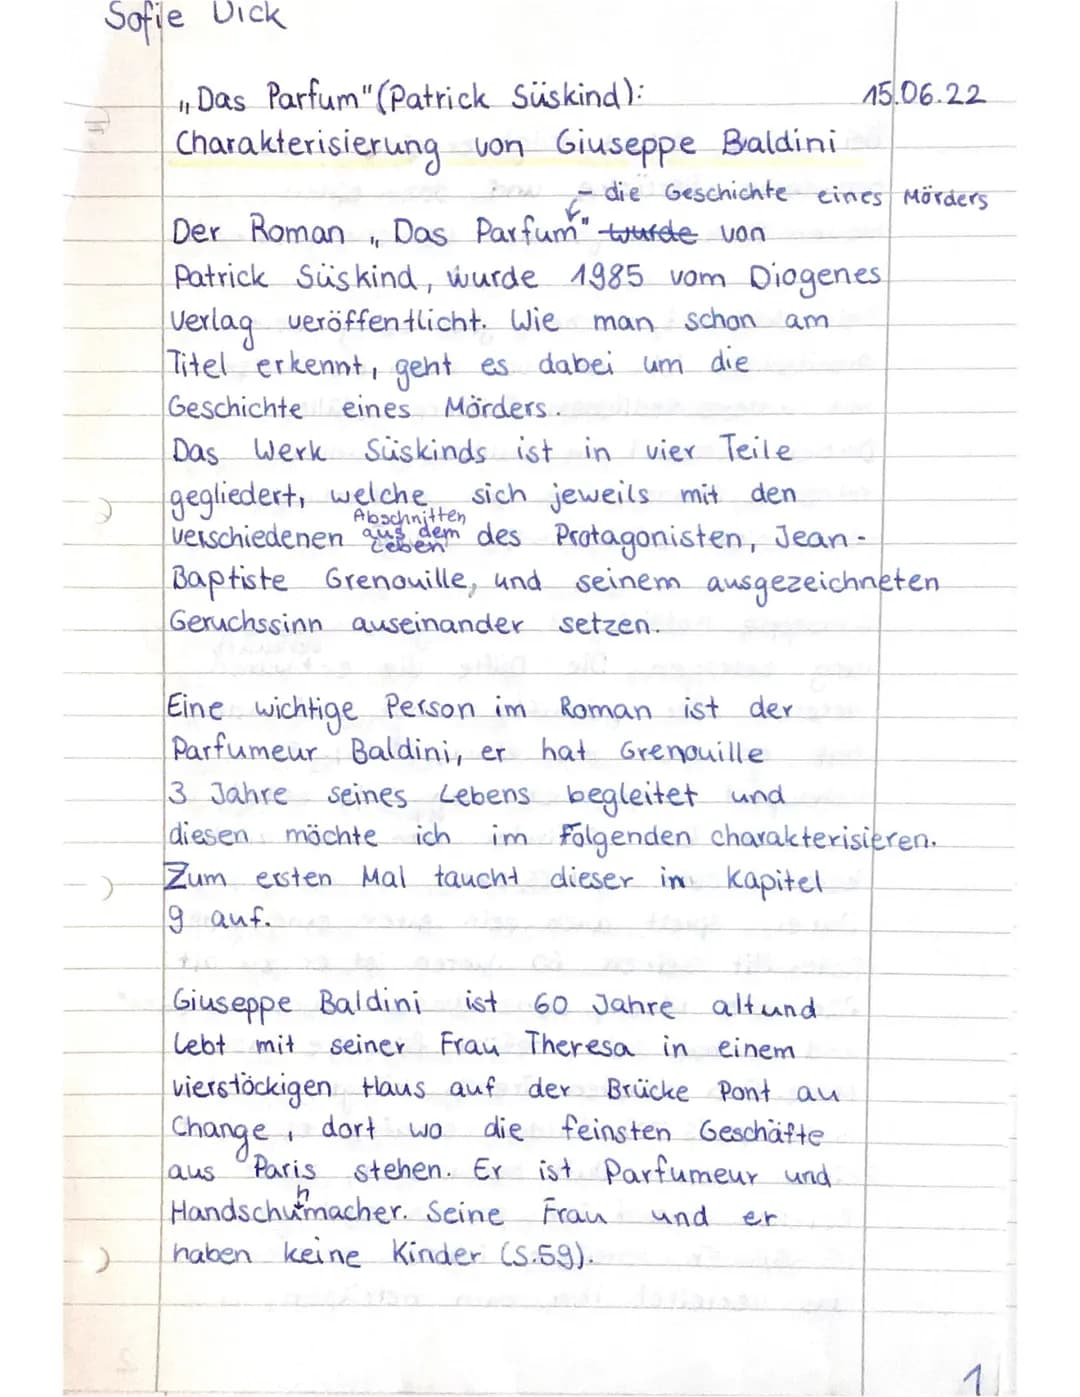 Sofie Dick
„Das Parfum" (Patrick Süskind): 15.06.22
Charakterisierung von Giuseppe Baldini
- die Geschichte eines Mörders
Der Roman „Das Parfum" wurde von
Patrick Süskind, wurde 1985 vom Diogenes
Verlag veröffentlicht. Wie man schon am
Titel erkennt, geht es dabei um die
Geschichte eines Mörders.
Das Werk Süskinds ist in vier Teile
gegliedert, welche sich jeweils mit den
Abschnitten
verschiedenen aus dem Leben des Protagonisten, Jean-
Baptiste Grenouille, und seinem ausgezeichneten
Geruchssinn auseinander setzen.
Eine wichtige Person im Roman ist der
Parfumeur Baldini, er hat Grenouille
3 Jahre seines Lebens begleitet und
diesen möchte ich im Folgenden charakterisieren.
Zum ersten Mal taucht dieser im Kapitel
9 auf.
Giuseppe Baldini ist 60 Jahre alt und
lebt mit seiner Frau Theresa in einem
vierstöckigen Haus auf der Brücke Pont au
Change, dort wo die feinsten Geschäfte
aus Paris stehen. Er ist Parfumeur und
Handschuhmacher. Seine Frau und er
haben keine Kinder (S.59).
1